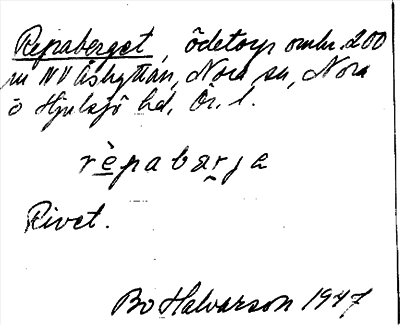 Repaberget, ödetorp omkr. 200
m NV Åshyttan, Nora sn, Nora
o Hjulsjö hd, Ör. l.
rèpabarja
Rivet.
Bo Halvarson 1947